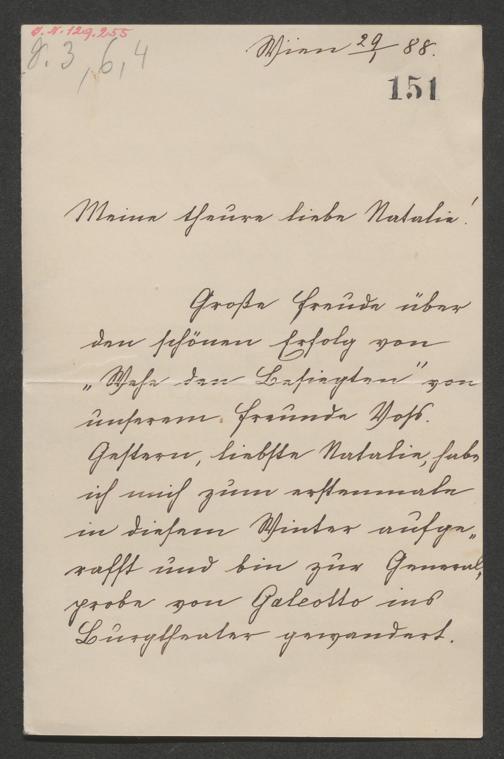 J. N. 129.255
J. 3, 6, 4
Wien 29/1 88.
151
Meine theure liebe Natalie!
Große Freude über
den schönen Erfolg von
„Wehe den Besiegten" von
unserem Freunde Voß.
Gestern, liebste Natalie, habe
ich mich zum erstenmale
in diesem Winter aufge„
rafft und bin zur General„
probe von Galeotto ins
Burgtheater gewandert.